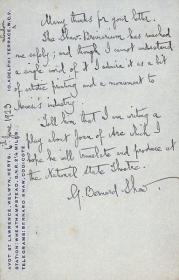 Many thanks for your letter.
The Shaw Breviarium has reached
me safely; and though I cannot understand
a single word of it I admire it as a bit
of artistic printing and a monument to
industry.
Tell him that I am writing a
play about Joan of Arc which I
hope he will translate and produce at
the National State Theatre.
G. Bernard Shaw
10 ADELPHI TERRACE. W.C.2.
June 1923
AYOT ST LAWRENCE, WELWYN, HERTS.
STATION: WHEATHAMPSTEAD, G.N.R. 2¼ MILES.
TELEGRAMS: BERNARD SHAW, CODICOTE